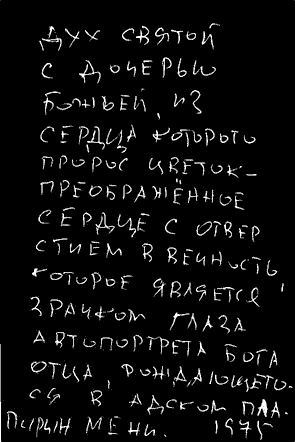 ДУХ СВЯТОЙ
С ДОЧЕРЬЮ
БОЖЬЕЙ, ИЗ
СЕРДЦА КОТОРОГО
ПРОРОС ЦВЕТОК-
ПРЕОБРАЖЁННОЕ
СЕРДЦЕ С ОТВЕР
СТИЕМ В ВЕЧНОСТЬ,
КОТОРОЕ ЯВЛЯЕТСЯ
ЗРАЧКОМ ГЛАЗА
АВТОПОРТРЕТА БОГА
ОТЦА, РОЖДАЮЩЕГО-
СЯ В АДСКОМ ПЛА-
МЕНИ. 1975